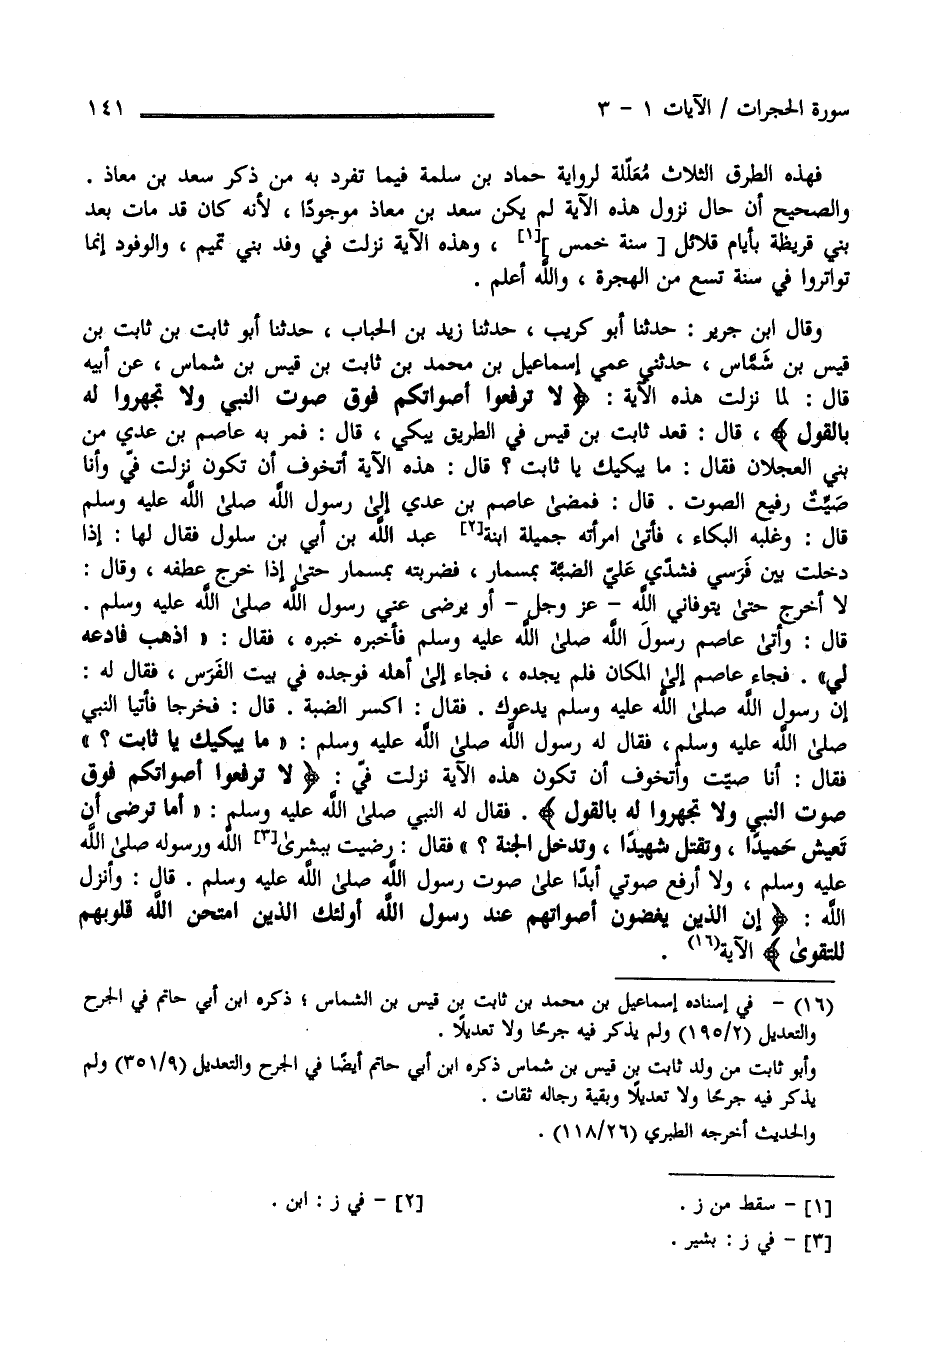 سورة الحجرات / الآيات ١ - ٣ ١٤١
فهذه الطرق الثلاث مُعَلّلة لرواية حماد بن سلمة فيما تفرد به من ذكر سعد بن معاذ .
والصحيح أن حال نزول هذه الآية لم يكن سعد بن معاذ موجودًا ، لأنه كان قد مات بعد
بني قريظة بأيام قلائل [ سنة خمس ][١] ، وهذه الآية نزلت في وفد بني تميم ، والوفود إنما
تواتروا في سنة تسع من الهجرة ، واللَّه أعلم .
وقال ابن جرير : حدثنا أبو كريب ، حدثنا زيد بن الحباب ، حدثنا أبو ثابت بن ثابت بن
قيس بن شَمَّاس ، حدثني عمي إسماعيل بن محمد بن ثابت بن قيس بن شماس ، عن أبيه
قال : لما نزلت هذه الآية : ﴿ لا ترفعوا أصواتكم فوق صوت النبي ولا تجهروا له
بالقول ﴾ ، قال : قعد ثابت بن قيس في الطريق يبكي ، قال : فمر به عاصم بن عدي من
بني العجلان فقال : ما يبكيك يا ثابت ؟ قال : هذه الآية أتخوف أن تكون نزلت فيّ وأنا
صَيِّتٌ رفيع الصوت . قال : فمضىٰ عاصم بن عدي إلىٰ رسول اللَّه صلىٰ اللَّه عليه وسلم
قال : وغلبه البكاء ، فأتىٰ امرأته جميلة ابنة[٢] عبد اللَّه بن أبي بن سلول فقال لها : إذا
دخلت بين فَرَسي فشدّي عَليّ الضبَّة بمسمار ، فضربته بمسمار حتىٰ إذا خرج عطفه ، وقال :
لا أخرج حتىٰ يتوفاني اللَّه - عز وجل - أو يرضى عني رسول اللَّه صلىٰ اللَّه عليه وسلم .
قال : وأتىٰ عاصم رسولَ اللَّه صلىٰ اللَّه عليه وسلم فأخبره خبره ، فقال : « اذهب فادعه
لي» . فجاء عاصم إلىٰ المكان فلم يجده ، فجاء إلىٰ أهله فوجده في بيت الفَرَس ، فقال له :
إن رسول اللَّه صلىٰ اللَّه عليه وسلم يدعوك . فقال : اكسر الضبة . قال : فخرجا فأتيا النبي
صلىٰ اللَّه عليه وسلم، فقال له رسول اللَّه صلىٰ اللَّه عليه وسلم : « ما يبكيك يا ثابت ؟ »
فقال : أنا صيّت وأتخوف أن تكون هذه الآية نزلت فيّ : ﴿ لا ترفعوا أصواتكم فوق
صوت النبي ولا تجهروا له بالقول ﴾ . فقال له النبي صلىٰ اللَّه عليه وسلم : « أما ترضى أن
تَعيش حَميدًا ، وتقتل شهيدًا ، وتدخل الجنة ؟ » فقال : رضيت ببشرىٰ[٣] اللَّه ورسوله صلىٰ اللَّه
عليه وسلم ، ولا أرفع صوتي أبدًا علىٰ صوت رسول اللَّه صلىٰ اللَّه عليه وسلم . قال : وأنزل
اللَّه : ﴿ إن الذين يغضون أصواتهم عند رسول اللَّه أولئك الذين امتحن اللَّه قلوبهم
للتقوىٰ ﴾ الآية(١٦) .
(١٦) - في إسناده إسماعيل بن محمد بن ثابت بن قيس بن الشماس ؛ ذكره ابن أبي حاتم في الجرح
والتعديل (١٩٥/٢) ولم يذكر فيه جرحًا ولا تعديلًا .
وأبو ثابت من ولد ثابت بن قيس بن شماس ذكره ابن أبي حاتم أيضًا في الجرح والتعديل (٣٥١/٩) ولم
يذكر فيه جرحًا ولا تعديلًا وبقية رجاله ثقات .
والحديث أخرجه الطبري (١١٨/٢٦) .
[١] - سقط من ز . [٢] - في ز : ابن .
[٣] - في ز : بشير .